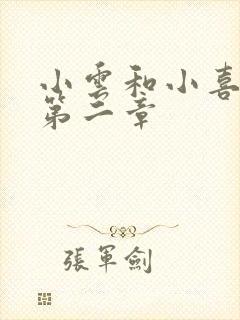 小雲和小喜
第二章
張軍劍